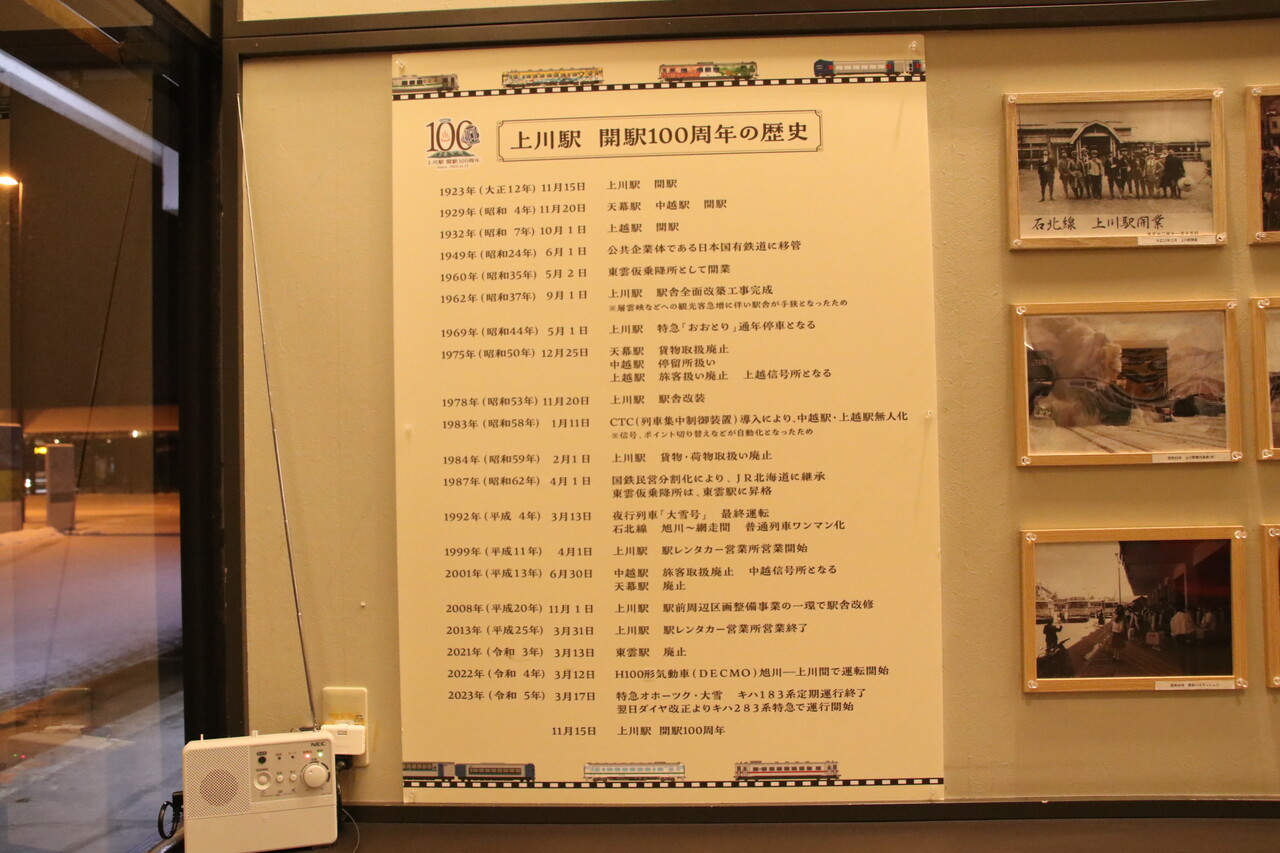 100
上川駅 開駅100周年
上川駅 開駅100周年の歴史
1923年(大正12年) 11月15日 上川駅 開駅
1929年(昭和 4年) 11月20日 天幕駅 中越駅 開駅
1932年(昭和 7年) 10月 1日 上越駅 開駅
1949年(昭和24年) 6月 1日 公共企業体である日本国有鉄道に移管
1960年(昭和35年) 5月 2日 東雲仮乗降所として開業
1962年(昭和37年) 9月 1日 上川駅 駅舎全面改築工事完成
※層雲峡などへの観光客急増に伴い駅舎が手狭となったため
1969年(昭和44年) 5月 1日 上川駅 特急「おおとり」通年停車となる
1975年(昭和50年) 12月25日 天幕駅 貨物取扱廃止
中越駅 停留所扱い
上越駅 旅客扱い廃止 上越信号所となる
1978年(昭和53年) 11月20日 上川駅 駅舎改装
1983年(昭和58年) 1月11日 CTC(列車集中制御装置)導入により、中越駅・上越駅無人化
※信号、ポイント切り替えなどが自動化となったため
1984年(昭和59年) 2月1日 上川駅 貨物・荷物取扱い廃止
1987年(昭和62年) 4月 1日 国鉄民営分割化により、JR北海道に継承
東雲仮乗降所は、東雲駅に昇格
1992年(平成 4年) 3月13日 夜行列車「大雪号」 最終運転
石北線 旭川～網走間 普通列車ワンマン化
1999年(平成11年) 4月1日 上川駅 駅レンタカー営業所営業開始
2001年(平成13年) 6月30日 中越駅 旅客取扱廃止 中越信号所となる
天幕駅 廃止
2008年(平成20年) 11月 1日 上川駅 駅前周辺区画整備事業の一環で駅舎改修
2013年(平成25年) 3月31日 上川駅 駅レンタカー営業所営業終了
2021年(令和 3年) 3月13日 東雲駅 廃止
2022年(令和 4年) 3月12日 H100形気動車(DECMO)旭川―上川間で運転開始
2023年(令和 5年) 3月17日 特急オホーツク・大雪 キハ183系定期運行終了
翌日ダイヤ改正よりキハ283系特急で運行開始
11月15日 上川駅 開駅100周年
石北線 上川駅開業
NEC